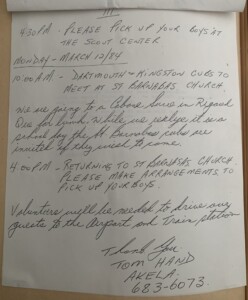 III
4:30 P.M. - PLEASE PICK UP YOUR BOYS AT
THE SCOUT CENTER
MONDAY - MARCH 12/84
10:00 A.M - DARTMOUTH - KINGSTON CUBS TO
MEET AT ST BARNABAS CHURCH
We are going to a
for lunch. While we realize it is a
school day the St Barnabas cubs are
invited if they wish to come.
4:00 P.M - RETURNING TO ST BARNABAS CHURCH
PLEASE MAKE ARRANGEMENTS TO
PICK UP YOUR BOYS.
Volunteers will be needed to drive our
guests to the Airport and train station
Thank You
TOM HAND
AKELA.
683-6073